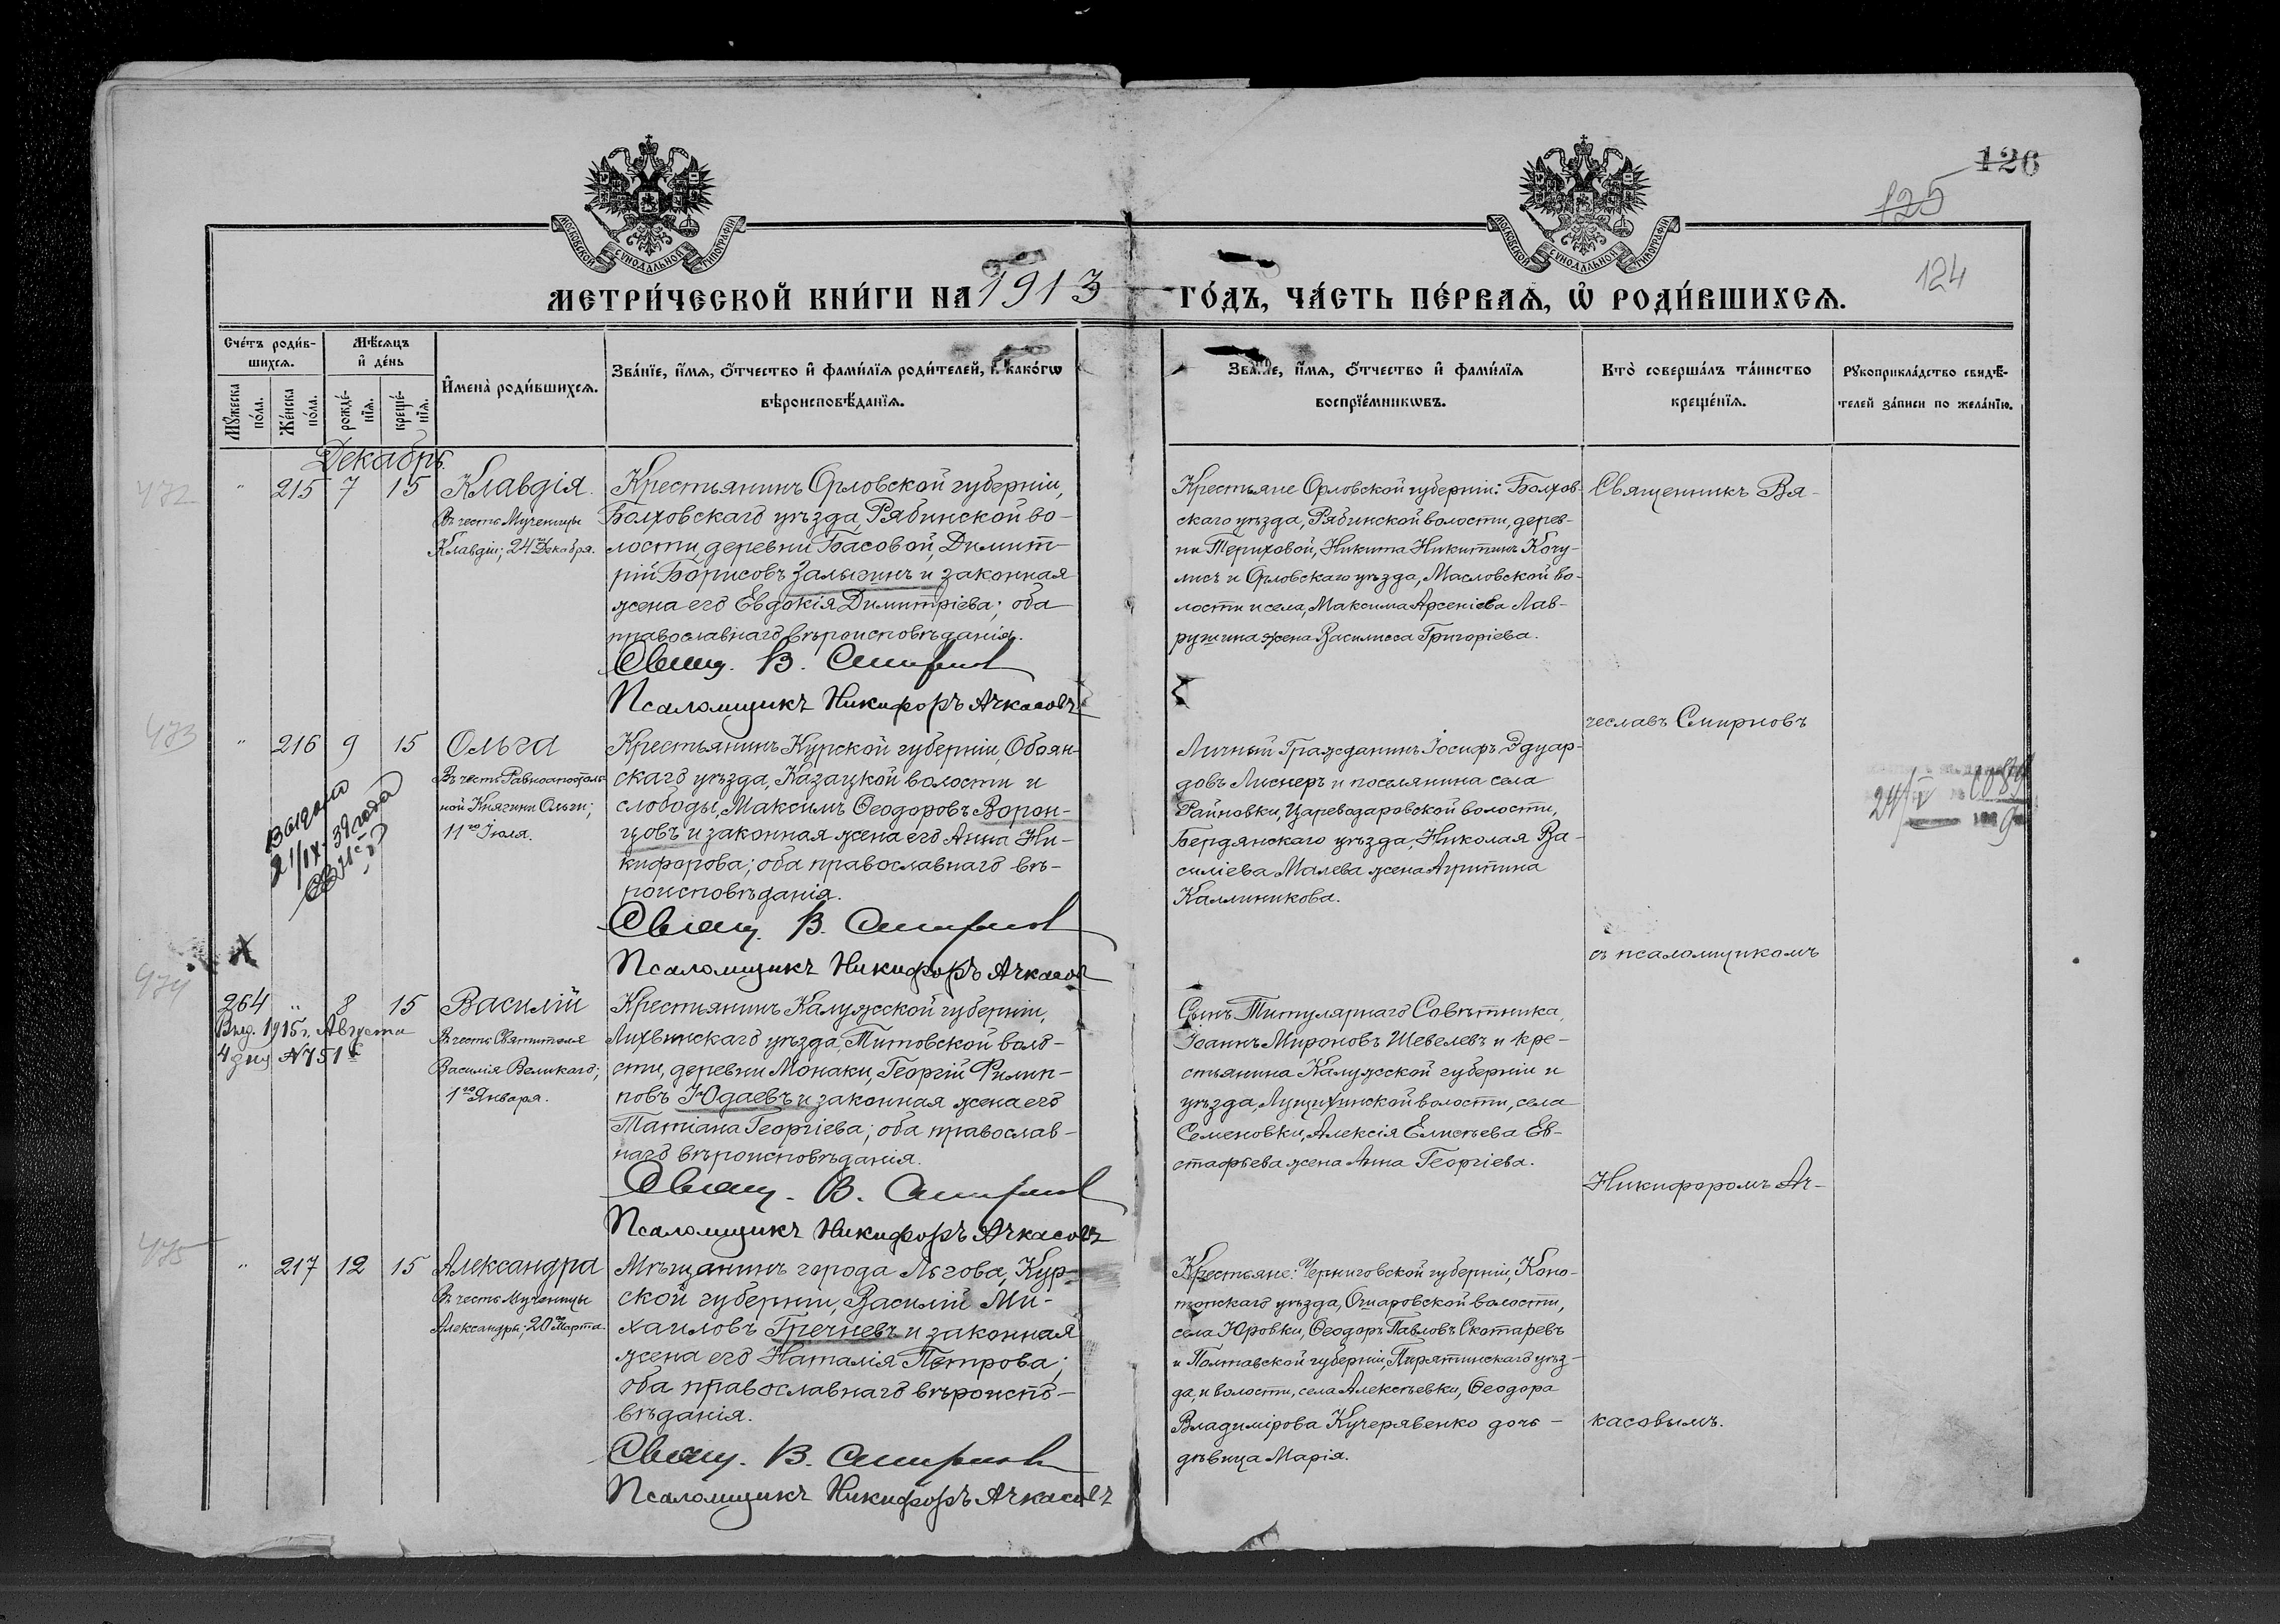 126
125
124
МОСКОВСКОЙ СѴНОДАЛЬНОЙ ТИПОГРАФІИ
МОСКОВСКОЙ СѴНОДАЛЬНОЙ ТИПОГРАФІИ
МЕТРИ́ЧЕСКОЙ КНИ́ГИ НА 1913
ГО́ДЪ, ЧА́СТЬ ПЕ́РВАѦ, Ѡ҆ РОДИ́ВШИХСѦ.
Сче́тъ роди́в-
шихсѧ.
Мѣ́сѧцъ
и҆ де́нь
Мꙋ́жеска по́ла.
Же́нска по́ла.
рожде́-
нїѧ.
креще́-
нїѧ.
И҆мена̀ роди́вшихсѧ.
Зва́нїе, и҆́мѧ, ѻ҆́тчество и҆ фами́лїѧ роди́телей, и҆ како́гѡ
вѣроисповѣ́данїѧ.
Зва́нїе, и҆́мѧ, ѻ҆́тчество и҆ фами́лїѧ
воспрїе́мникѡвъ.
Кто̀ соверша́лъ та́инство
креще́нїѧ.
Рꙋкоприкла́дство свидѣ́-
телей за́писи по жела́нїю.
Декабрь.
472
" 215 7 15
Клавдія.
Въ честь Мученицы
Клавдіи; 24 Декабря.
Крестьянинъ Орловской губерніи,
Болховскаго уѣзда, Рябинской во-
лости, деревни Басовой, Димит-
рій Борисовъ Залыгинъ и законная
жена его Евдокія Димитріева; оба
православнаго вѣроисповѣданія.
Свящ. В. Смирнов
Псаломщикъ Никифоръ Ачкасовъ
Крестьяне Орловской губерніи: Болхов-
скаго уѣзда, Рябинской волости, дерев-
ни Териховой, Никита Никитинъ
и Орловскаго уѣзда, Масловской во-
лости и села, Максима Арсеніева Лав-
рушина жена Василисса Григоріева.
Священникъ Вя-
чеславъ Смирновъ
473
" 216 9 15
Ольга
Въ честь Равноапостоль-
ной Княгини Ольги;
11го Іюля.
Выдано
21/IX-39 года
Крестьянинъ Курской губерніи, Обоян-
скаго уѣзда, Казацкой волости и
слободы, Максимъ Ѳеодоровъ Ворон-
цовъ и законная жена его Анна Ни-
кифорова; оба православнаго вѣ-
роисповѣданія.
Свящ. В. Смирнов
Псаломщикъ Никифоръ Ачкасов
Личный Гражданинъ Іосифъ Эдуар-
довъ Лиснеръ и поселянина села
Райновки, Цареводаровской волости,
Бердянскаго уѣзда, Николая Ва-
силіева Малева жена Агриппина
Каллиникова.
съ псаломщикомъ
24/V
474
X
264 " 8 15
Выд. 1915 г. Августа
4 дня №751
Василій
Въ честь Святителя
Василія Великаго;
1го Января.
Крестьянинъ Калужской губерніи,
Лихвинскаго уѣзда, Титовской воло-
сти, деревни Монаки, Георгій Филип-
повъ Юдаевъ и законная жена его
Татіана Георгіева; оба православ-
наго вѣроисповѣданія.
Свящ. В. Смирнов
Псаломщикъ Никифоръ Ачкасовъ
Сынъ Титулярнаго Совѣтника,
Іоаннъ Мироновъ Шевелевъ и кре-
стьянина Калужской губерніи и
уѣзда, волости, села
Семеновки, Алексія Елисѣева Ев-
стафьева жена Анна Георгіева.
Никифоромъ Ач-
475
" 217 12 15
Александра
Въ честь Мученицы
Александры; 20 Марта.
Мѣщанинъ города Льгова, Кур-
ской губерніи, Василій Ми-
хаиловъ Гречневъ и законная
жена его Наталія Петрова;
оба православнаго вѣроиспо-
вѣданія.
Свящ. В. Смирнов
Псаломщикъ Никифоръ Ачкасовъ
Крестьяне: Черниговской губерніи, Коно-
топскаго уѣзда, волости,
села Юровки, Ѳеодоръ Павловъ Скотаревъ
и Полтавской губерніи, Пирятинскаго уѣз-
да, и волости, села Алексѣевки, Ѳеодора
Владимірова Кучерявенко дочь -
дѣвица Марія.
касовымъ.